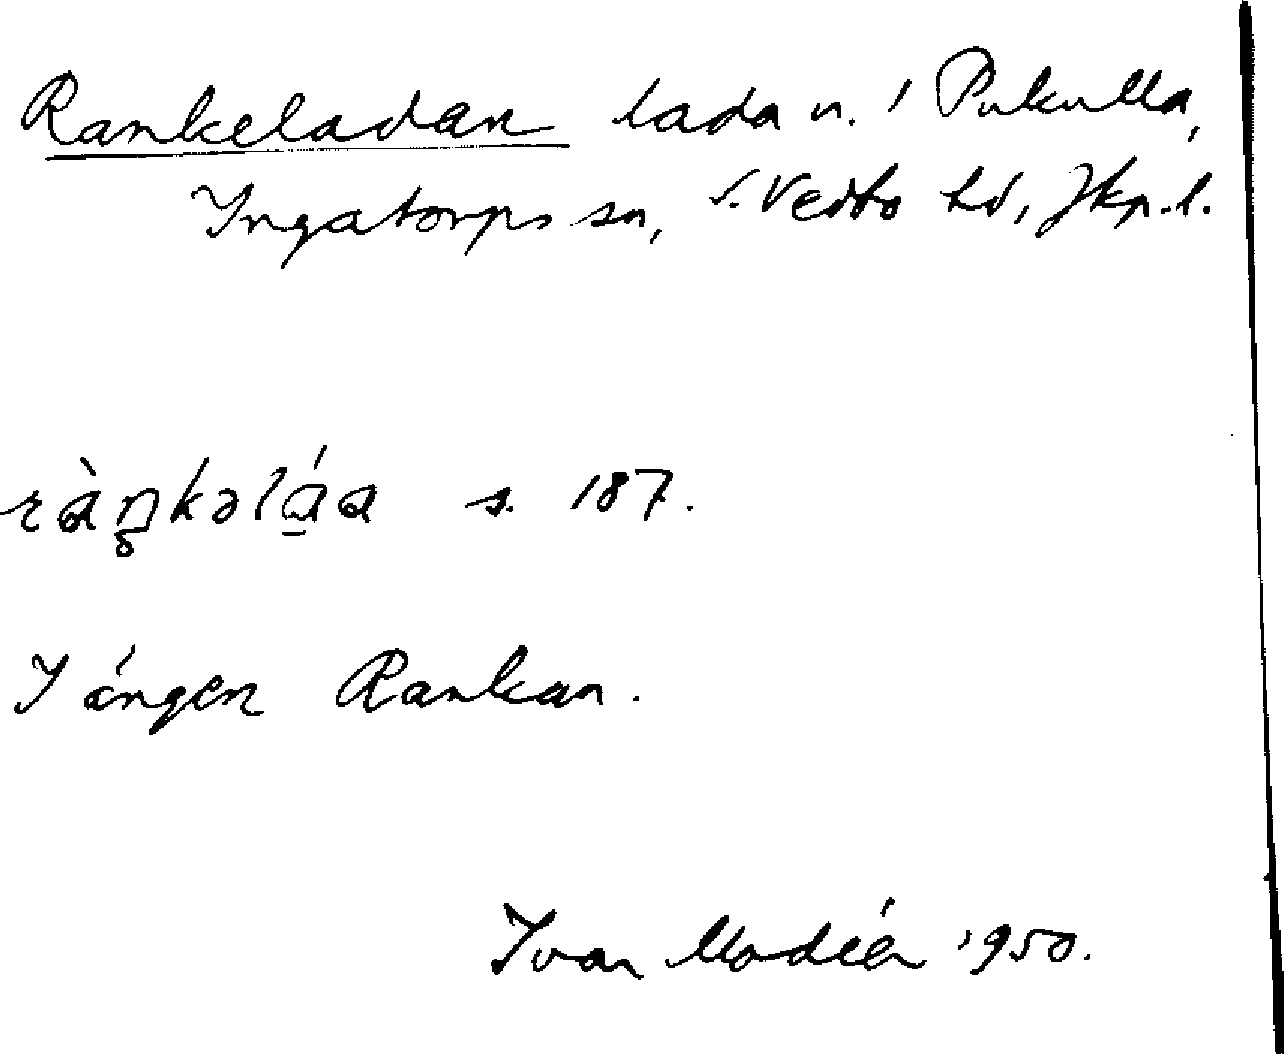 Rankeladan lada n. i Pukulla,
Ingatorps sn, S. Vedbo hd, Jkp. l.
ràŋkəlá̱a s. 187.
I ängen Rankan.
Ivar Modéer 1950.